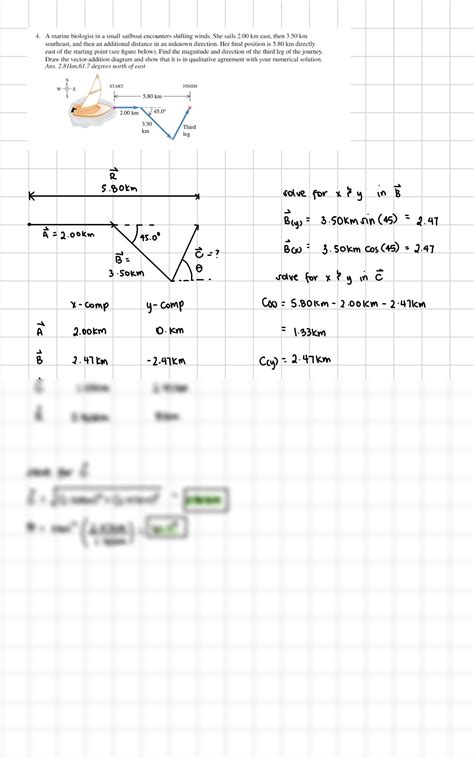 4. A marine biologist in a small sailboat encounters shifting winds. She sails 2.00 km east, then 3.50 km
southeast, and then an additional distance in an unknown direction. Her final position is 5.80 km directly
east of the starting point (see figure below). Find the magnitude and direction of the third leg of the journey.
Draw the vector-addition diagram and show that it is in qualitative agreement with your numerical solution.
Ans. 2.81km,61.7 degrees north of east
N
W E
S
START FINISH
5.80 km
2.00 km 45.0°
3.50
km
Third
leg
R
5.80km
A = 2.00km
45.0°
B =
3.50km
C = ?
θ
solve for x & y in B
B(y) = 3.50km sin (45) = 2.47
B(x) = 3.50km cos (45) = 2.47
solve for x & y in C
C(x) = 5.80km - 2.00km - 2.47km
= 1.33km
C(y) = 2.47km
x-comp y-comp
A 2.00km 0.km
B 2.47km -2.47km